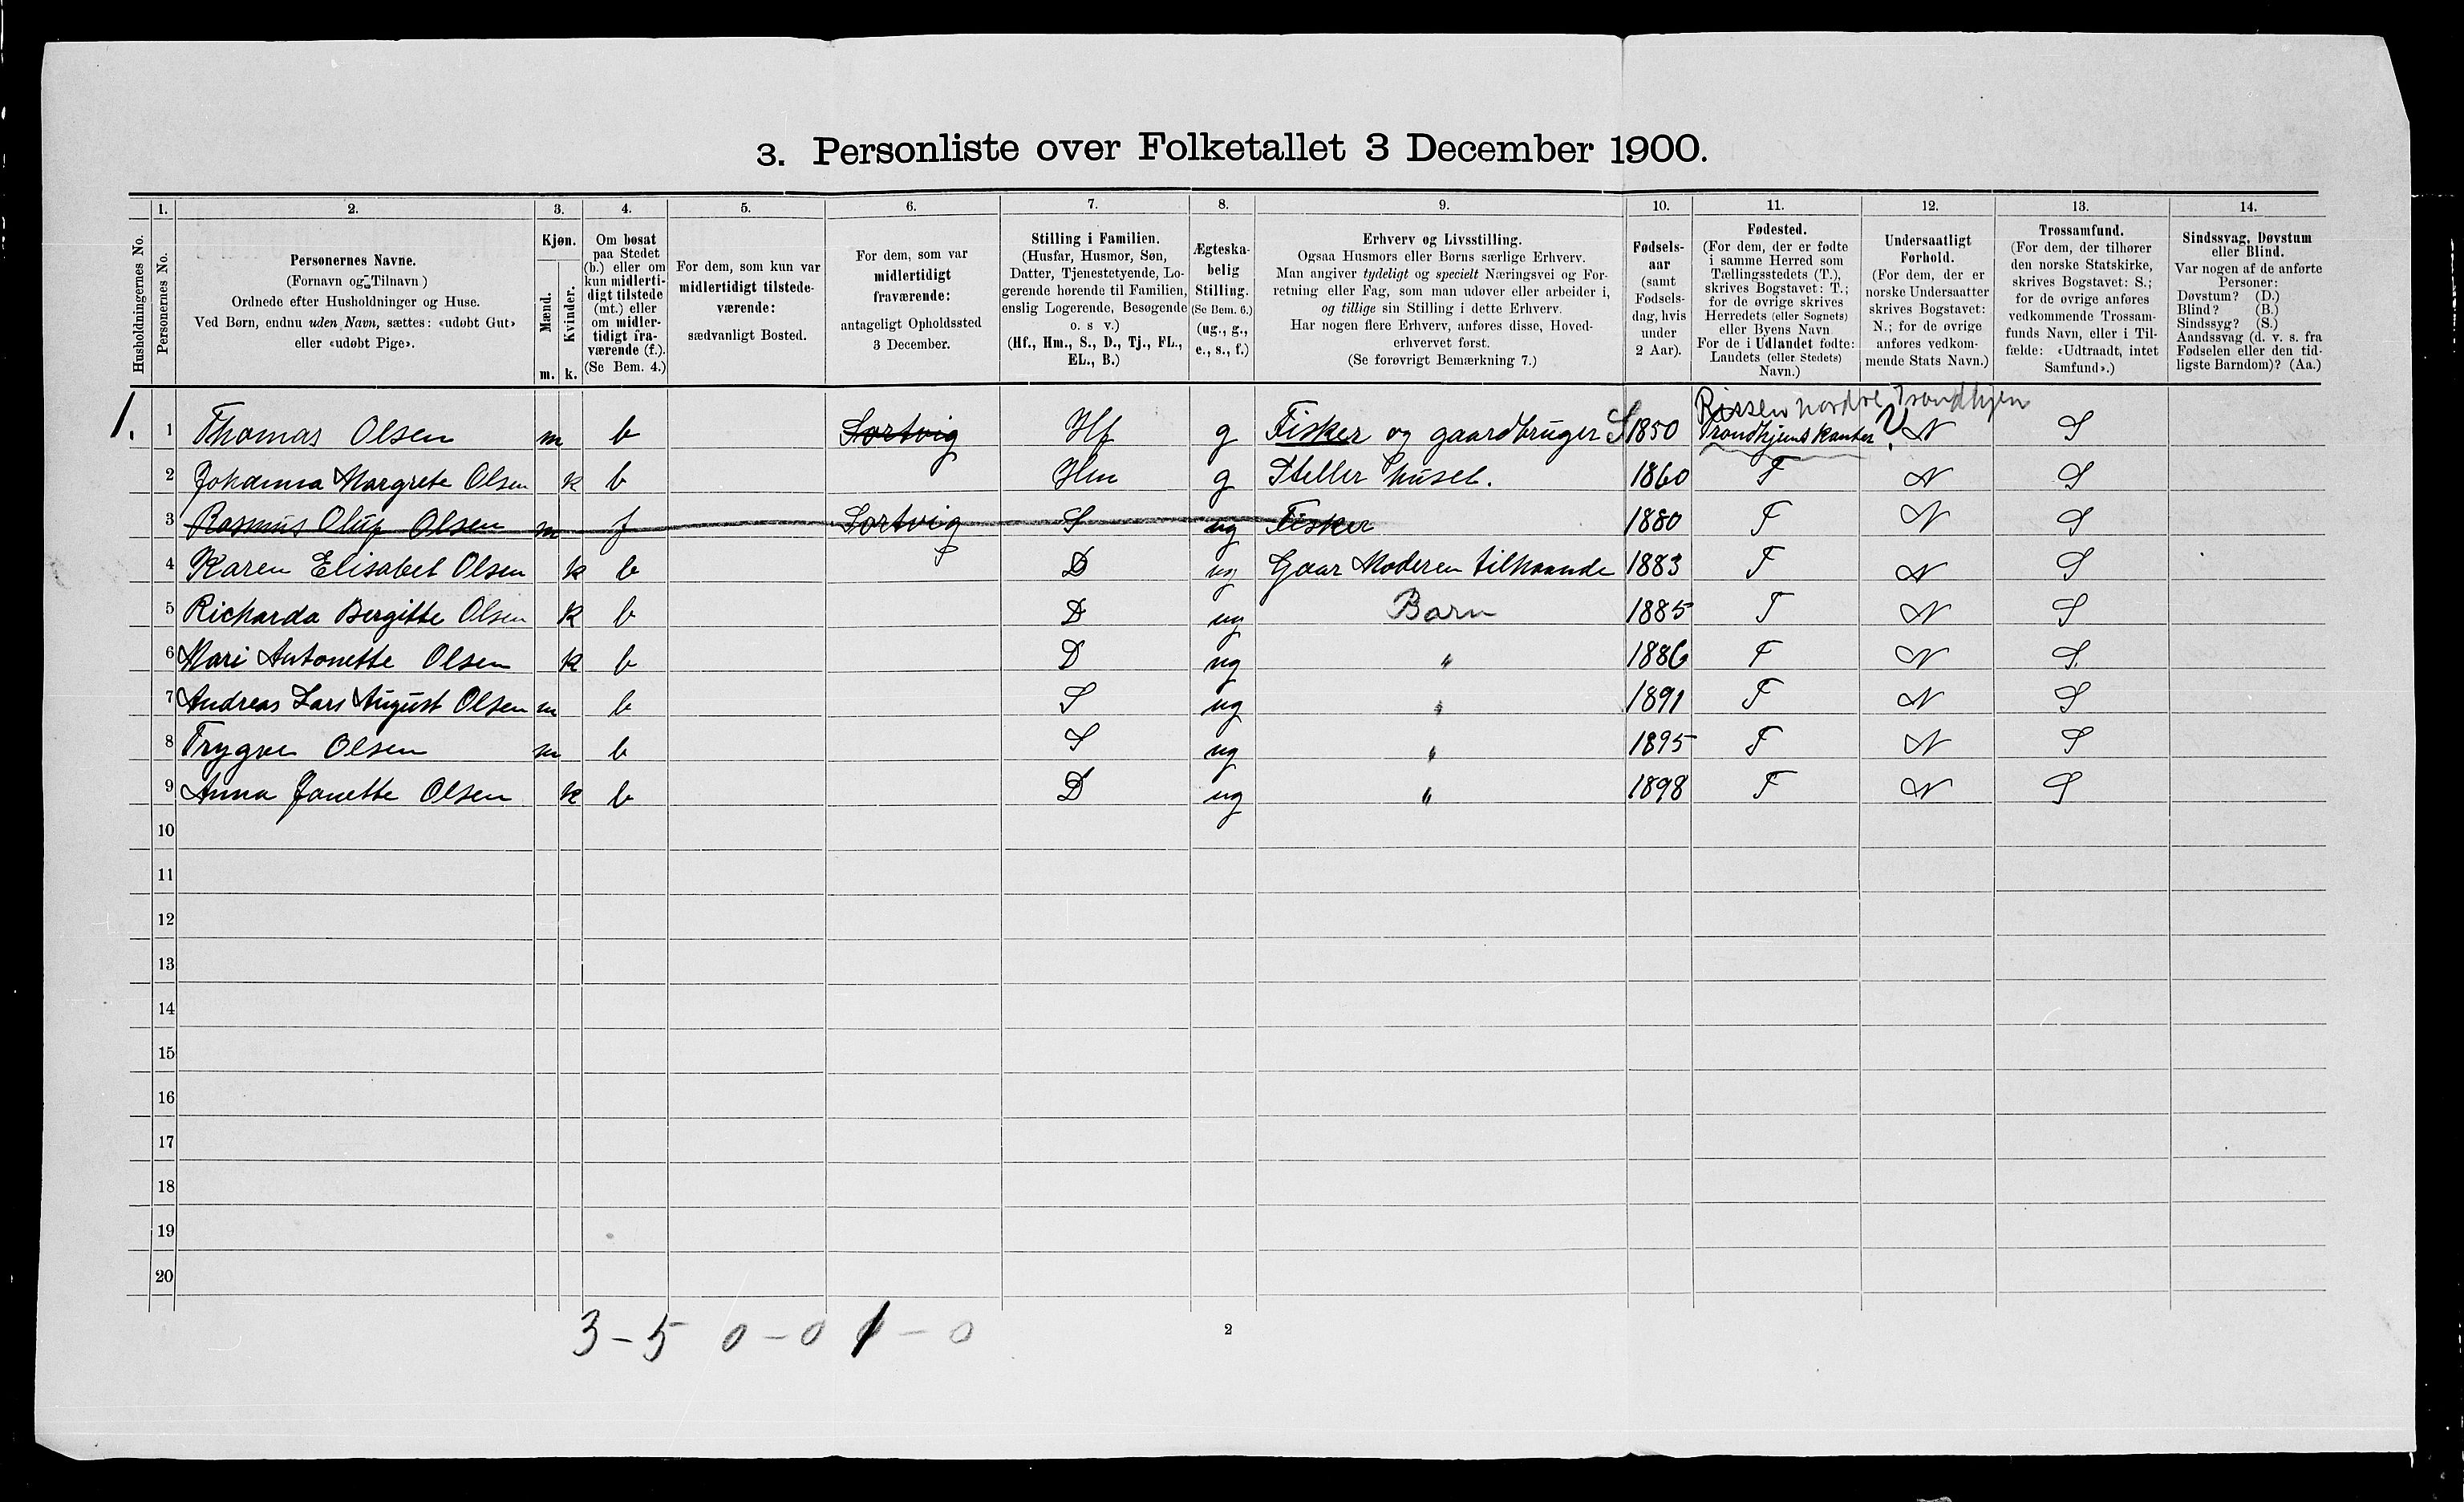 3. Personliste over Folketallet 3 December 1900.
1. 2. 3. 4. 5. 6. 7. 8. 9. 10. 11. 12. 13. 14.
Husholdningernes No.
Personernes No.
Personernes Navne.
(Fornavn og Tilnavn)
Ordnede efter Husholdninger og Huse.
Ved Børn, endnu uden Navn, sættes: «udøbt Gut»
eller «udøbt Pige».
Kjøn.
Mænd.
Kvinder.
m. k.
Om bosat
paa Stedet
(b.) eller om
kun midlerti-
digt tilstede
(mt.) eller
om midler-
tidigt fra-
værende (f.).
(Se Bem. 4.)
For dem, som kun var
midlertidigt tilstede-
værende:
sædvanligt Bosted.
For dem, som var
midlertidigt
fraværende:
antageligt Opholdssted
3 December.
Stilling i Familien.
(Husfar, Husmor, Søn,
Datter, Tjenestetyende, Lo-
gerende hørende til Familien,
enslig Logerende, Besøgende
o. s v.)
(Hf., Hm., S., D., Tj., FL.,
EL., B.)
Ægteska-
belig
Stilling.
(Se Bem. 6.)
(ug., g.,
e., s., f.)
Erhverv og Livsstilling.
Ogsaa Husmors eller Børns særlige Erhverv.
Man angiver tydeligt og specielt Næringsvei og For-
retning eller Fag, som man udøver eller arbeider i,
og tillige sin Stilling i dette Erhverv.
Har nogen flere Erhverv, anføres disse, Hoved-
erhvervet først.
(Se forøvrigt Bemærkning 7.)
Fødsels-
aar
(samt
Fødsels-
dag, hvis
under
2 Aar).
Fødested.
(For dem, der er fødte
i samme Herred som
Tællingsstedets (T.),
skrives Bogstavet: T.;
for de øvrige skrives
Herredets (eller Sognets)
eller Byens Navn
For de i Udlandet fødte:
Landets (eller Stedets)
Navn.)
Undersaatligt
Forhold.
(For dem, der er
norske Undersaatter
skrives Bogstavet:
N.; for de øvrige
anføres vedkom-
mende Stats Navn.)
Trossamfund.
(For dem, der tilhører
den norske Statskirke,
skrives Bogstavet: S.;
for de øvrige anføres
vedkommende Trossam-
funds Navn, eller i Til-
fælde: «Udtraadt, intet
Samfund».)
Sindssvag, Døvstum
eller Blind.
Var nogen af de anførte
Personer:
Døvstum? (D.)
Blind? (B.)
Sindssyg? (S.)
Aandssvag (d. v. s. fra
Fødselen eller den tid-
ligste Barndom)? (Aa.)
Rissen nordre Trondhjem
1. 1 Thomas Olsen m b Sortvig Hf g Fisker og gaardbruger S 1850 Trondhjemskanten ? N S
2 Johanna Margrete Olsen k b Hm g Steller huset. 1860 T N S
3 Rasmus Oluf Olsen m f Sortvig S ug Fisker 1880 T N S
4 Karen Elisabet Olsen k b D ug Gaar Moderen tilhaande 1883 T N S
5 Richarda Bergitte Olsen k b D ug Barn 1885 T N S
6 Mari Antonette Olsen k b D ug " 1886 T N S.
7 Andreas Lars August Olsen m b S ug " 1891 T N S
8 Trygve Olsen m b S ug " 1895 T N S
9 Anna Janette Olsen k b D ug " 1898 T N S
10
11
12
13
14
15
16
17
18
19
20
3 - 5 0 - 0 1 - 0
2